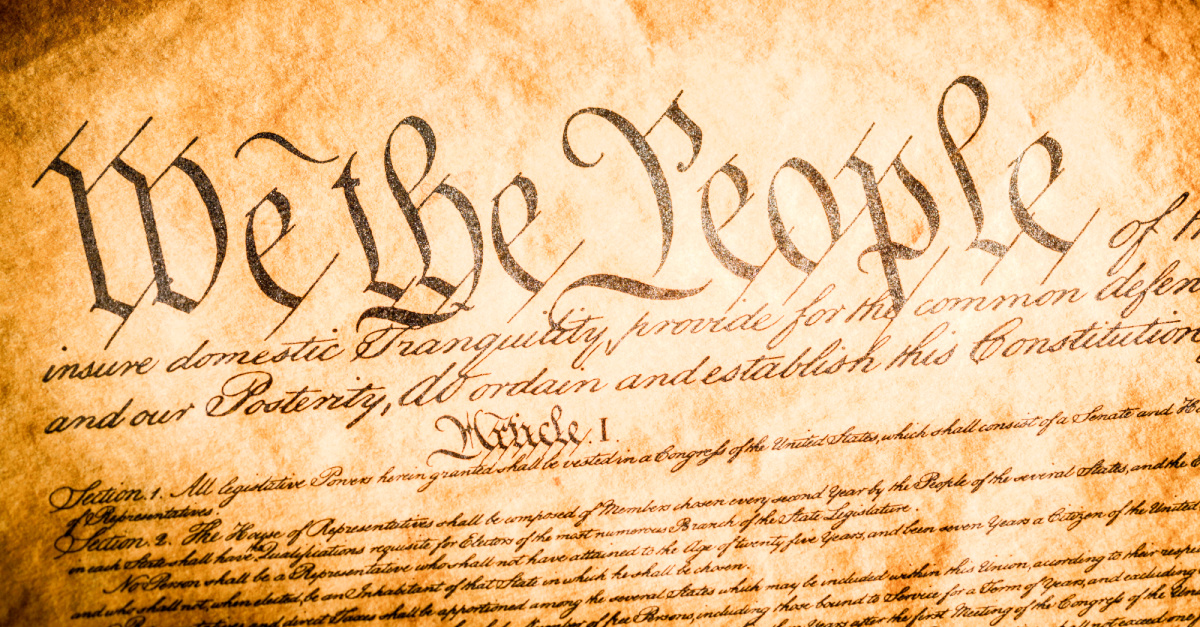 We the People of
insure domestic Tranquility, provide for the common defen
and our Posterity, do ordain and establish this Constitution
Article. I.
Section. 1. All legislative Powers herein granted shall be vested in a Congress of the United States, which shall consist of a Senate and
of Representatives
Section. 2. The House of Representatives shall be composed of Members chosen every second Year by the People of the several States, and the
in each State shall have the Qualifications requisite for Electors of the most numerous Branch of the State Legislature.
No Person shall be a Representative who shall not have attained to the Age of twenty five Years, and been seven Years a Citizen of the United
and who shall not, when elected, be an Inhabitant of that State in which he shall be chosen.
and direct Taxes shall be apportioned among the several States which may be included within this Union, according to their respe
Number of free Persons, including those bound to Service for a Term of Years, and excluding
Years after the first Meeting of the Congress of the
shall not exceed one